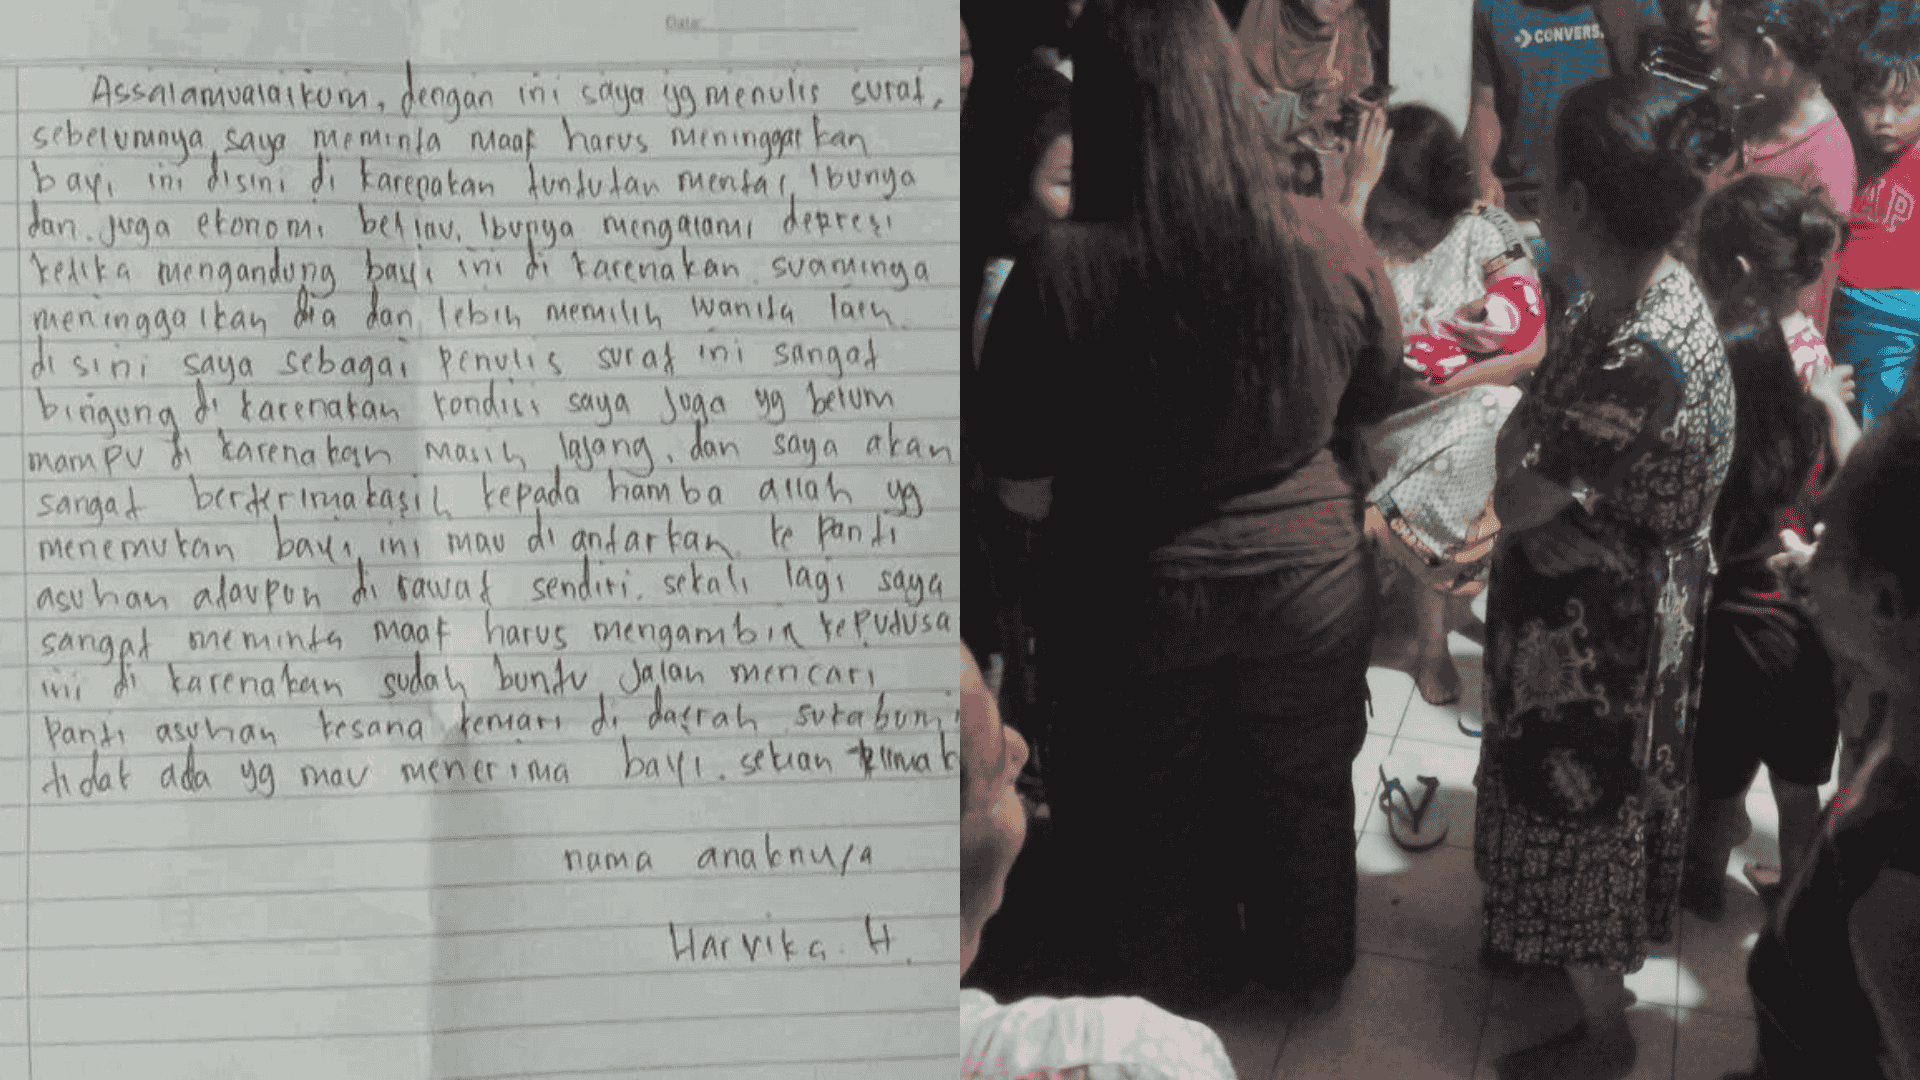 Date:
Assalamualaikum, dengan ini saya yg menulis surat,
sebelumnya saya meminta maaf harus meninggalkan
bayi ini disini di karenakan tuntutan mental Ibunya
dan juga ekonomi beliau. Ibunya mengalami depresi
ketika mengandung bayi ini di karenakan suaminya
meninggalkan dia dan lebih memilih wanita lain.
disini saya sebagai penulis surat ini sangat
bingung di karenakan kondisi saya juga yg belum
mampu di karenakan masih lajang, dan saya akan
sangat berterimakasih kepada hamba allah yg
menemukan bayi ini mau di antarkan ke Panti
asuhan ataupun di rawat sendiri. sekali lagi saya
sangat meminta maaf harus mengambil keputusa
ini di karenakan sudah buntu Jalan mencari
Panti asuhan kesana kemari di daerah sukabumi
tidak ada yg mau menerima bayi. sekian
nama anaknya
Harvika. H.
CONVERS